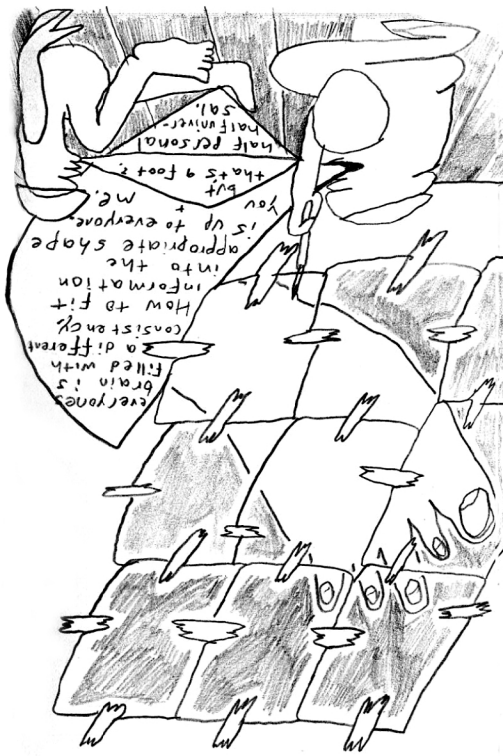 everyones
brain is
filled with
a different
consistency.
How to fit
information
into the
appropriate shape
is up to everyone.
You + me.
but
thats a foot?
half personal
half univer-
sal.